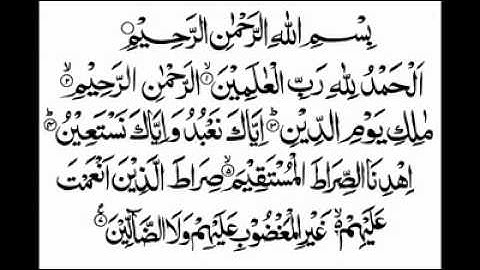 بِسْمِ اللهِ الرَّحْمٰنِ الرَّحِيْمِ
اَلْحَمْدُ لِلهِ رَبِّ الْعٰلَمِيْنَ ۙ﴿۱﴾ الرَّحْمٰنِ الرَّحِيْمِ ۙ﴿۲﴾
مٰلِكِ يَوْمِ الدِّيْنِ ؕ﴿۳﴾ اِيَّاكَ نَعْبُدُ وَاِيَّاكَ نَسْتَعِيْنُ ؕ﴿۴﴾
اِهْدِنَا الصِّرَاطَ الْمُسْتَقِيْمَ ۙ﴿۵﴾ صِرَاطَ الَّذِيْنَ اَنْعَمْتَ
عَلَيْهِمْ ۙ﴿۶﴾ غَيْرِ الْمَغْضُوْبِ عَلَيْهِمْ وَلَا الضَّآلِّيْنَ ﴿۷﴾